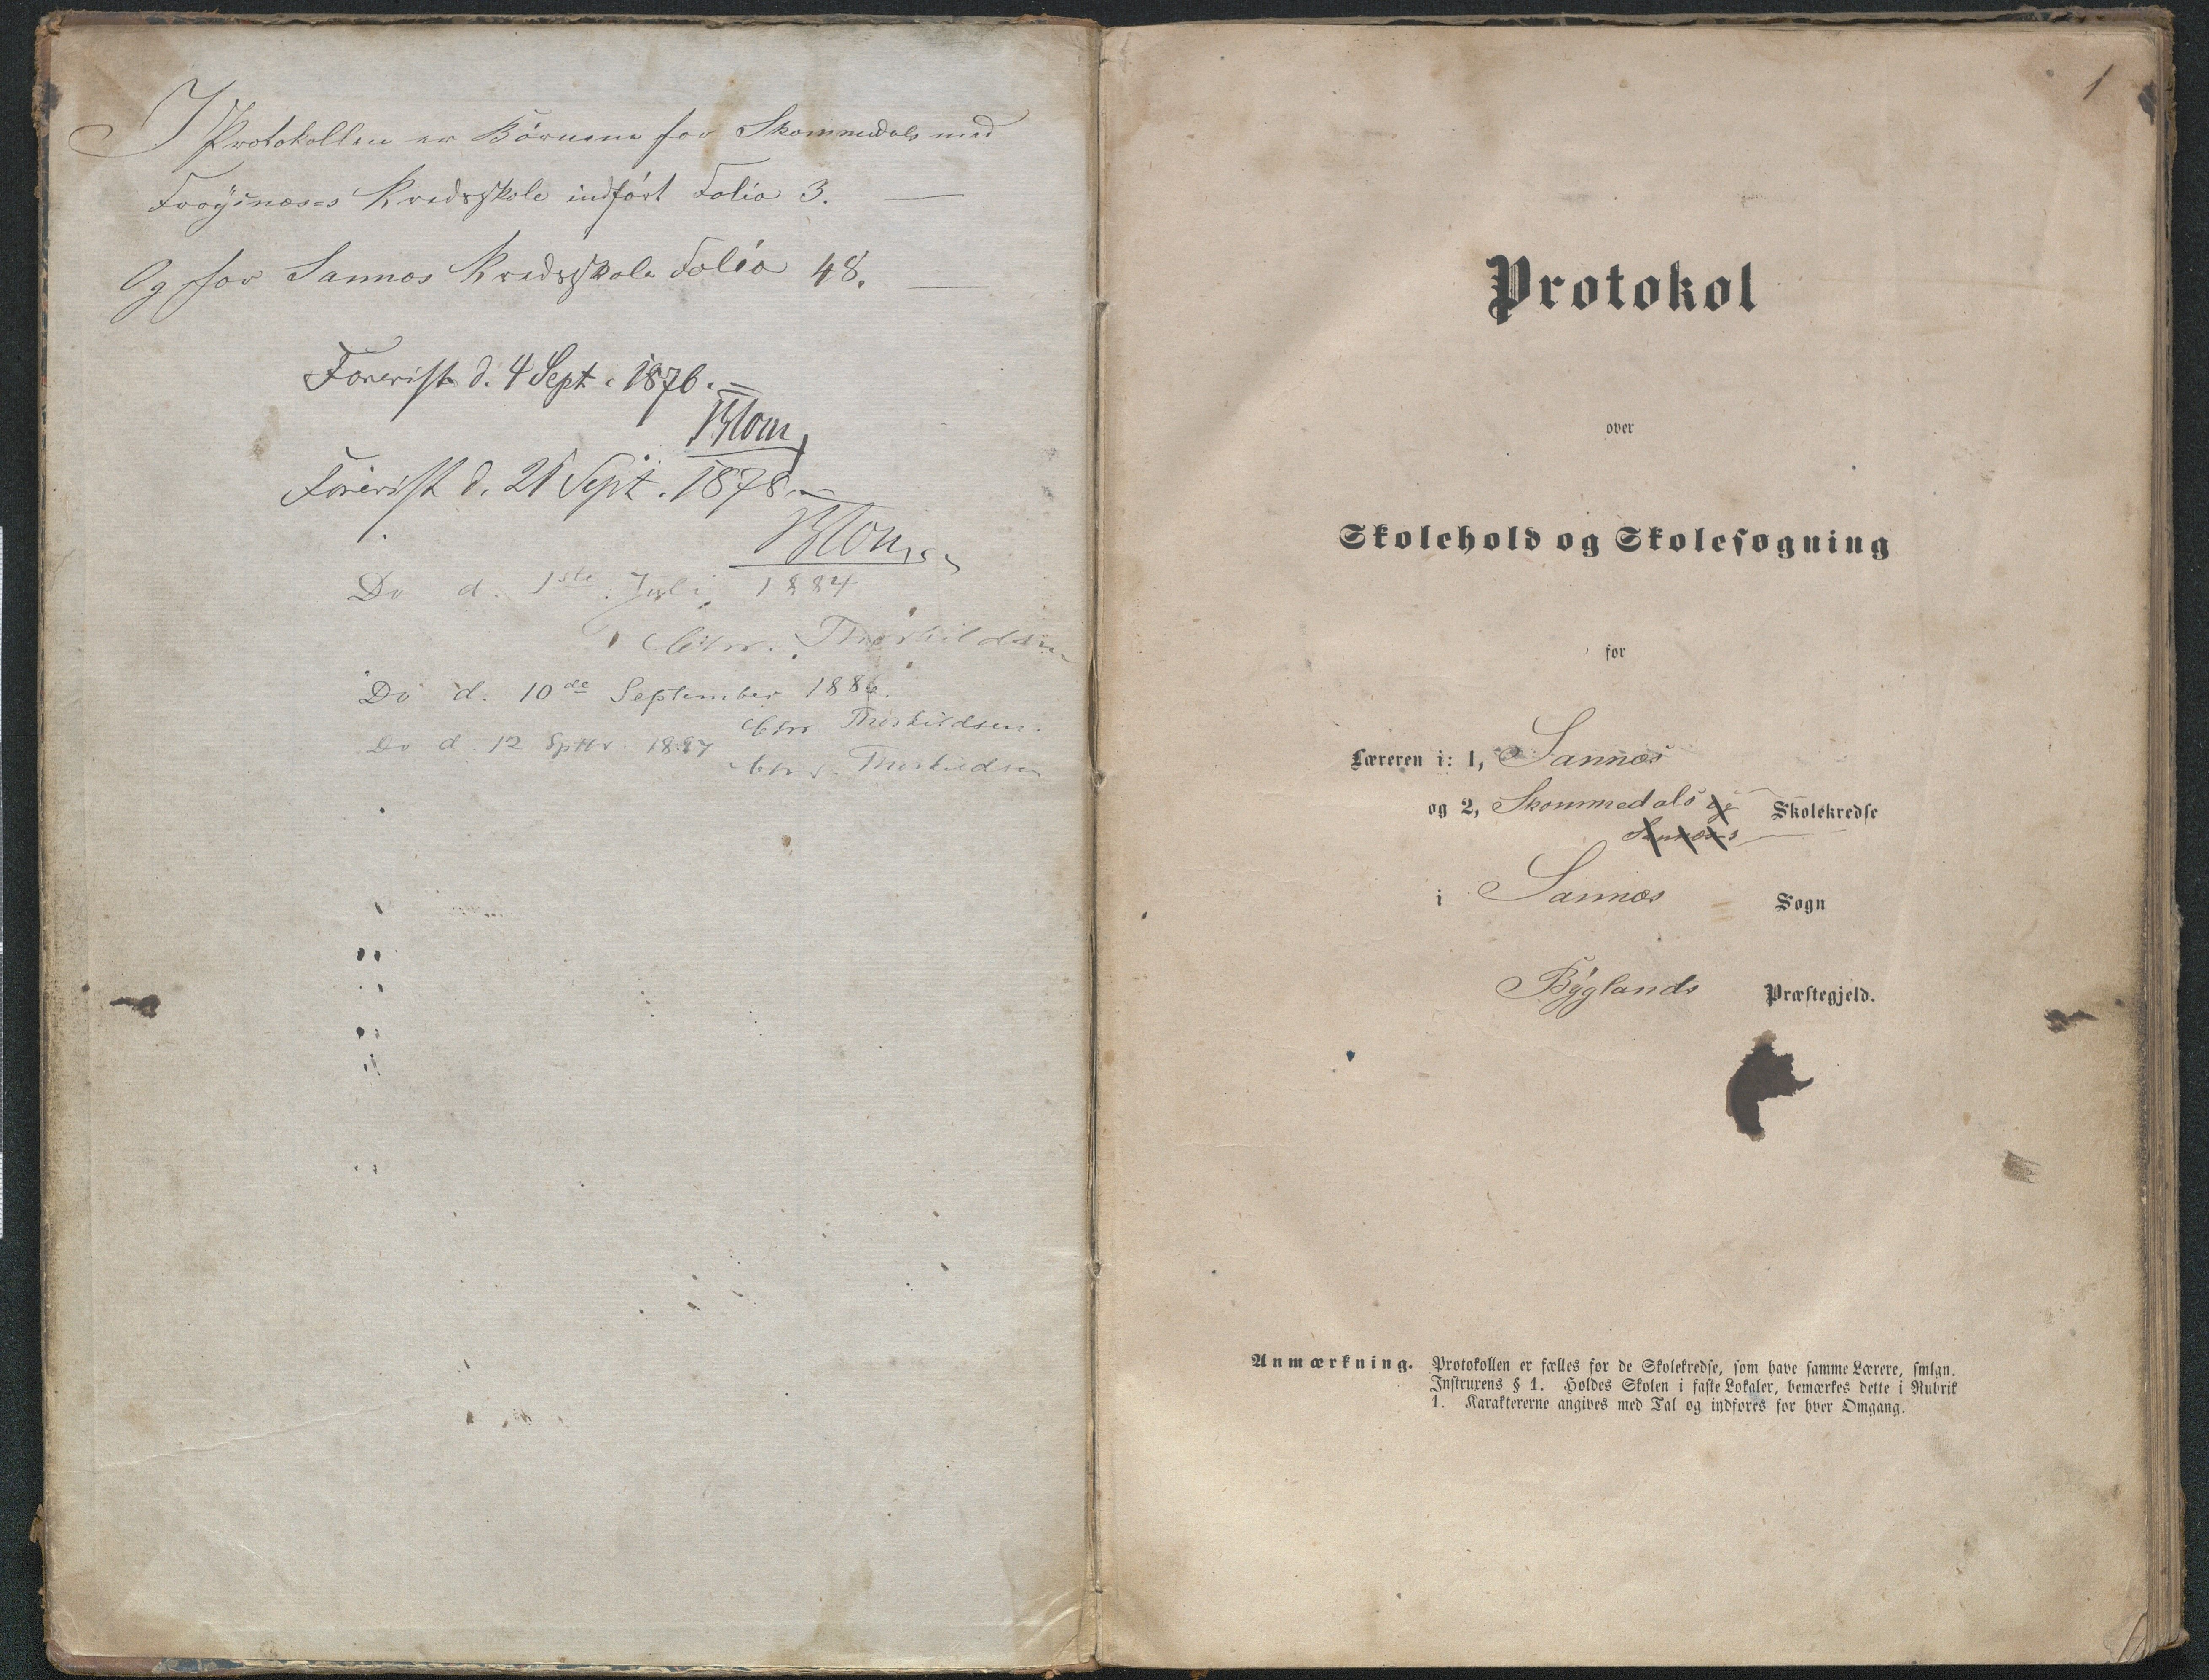 I Protokollen er Børnene for Skommedals med
Frøysnæs's Kredsskole indført Folio 3. —
Og for Sannæs Kredsskole Folio 48. —
Forevist d. 4 Sept. 1876. —
Blom
Forevist d. 21 Sept. 1878. —
Blom
Do d. 1ste Juli 1884
Chr. Thorkildsen
Do d. 10de September 1886.
Chr Thorkildsen.
Do d. 12 Septbr. 1887
Chr. Thorkildsen
1
Protokol
over
Skolehold og Skolesøgning
for
Læreren i: 1, Sannæs
og 2, Skommedals og Skolekredse
Sannæs's
i Sannæs Sogn
Byglands Præstegjeld.
Anmærkning. Protokollen er fælles for de Skolekredse, som have samme Lærere, smlgn.
Instruxens § 1. Holdes Skolen i faste Lokaler, bemærkes dette i Rubrik
1. Karaktererne angives med Tal og indføres for hver Omgang.